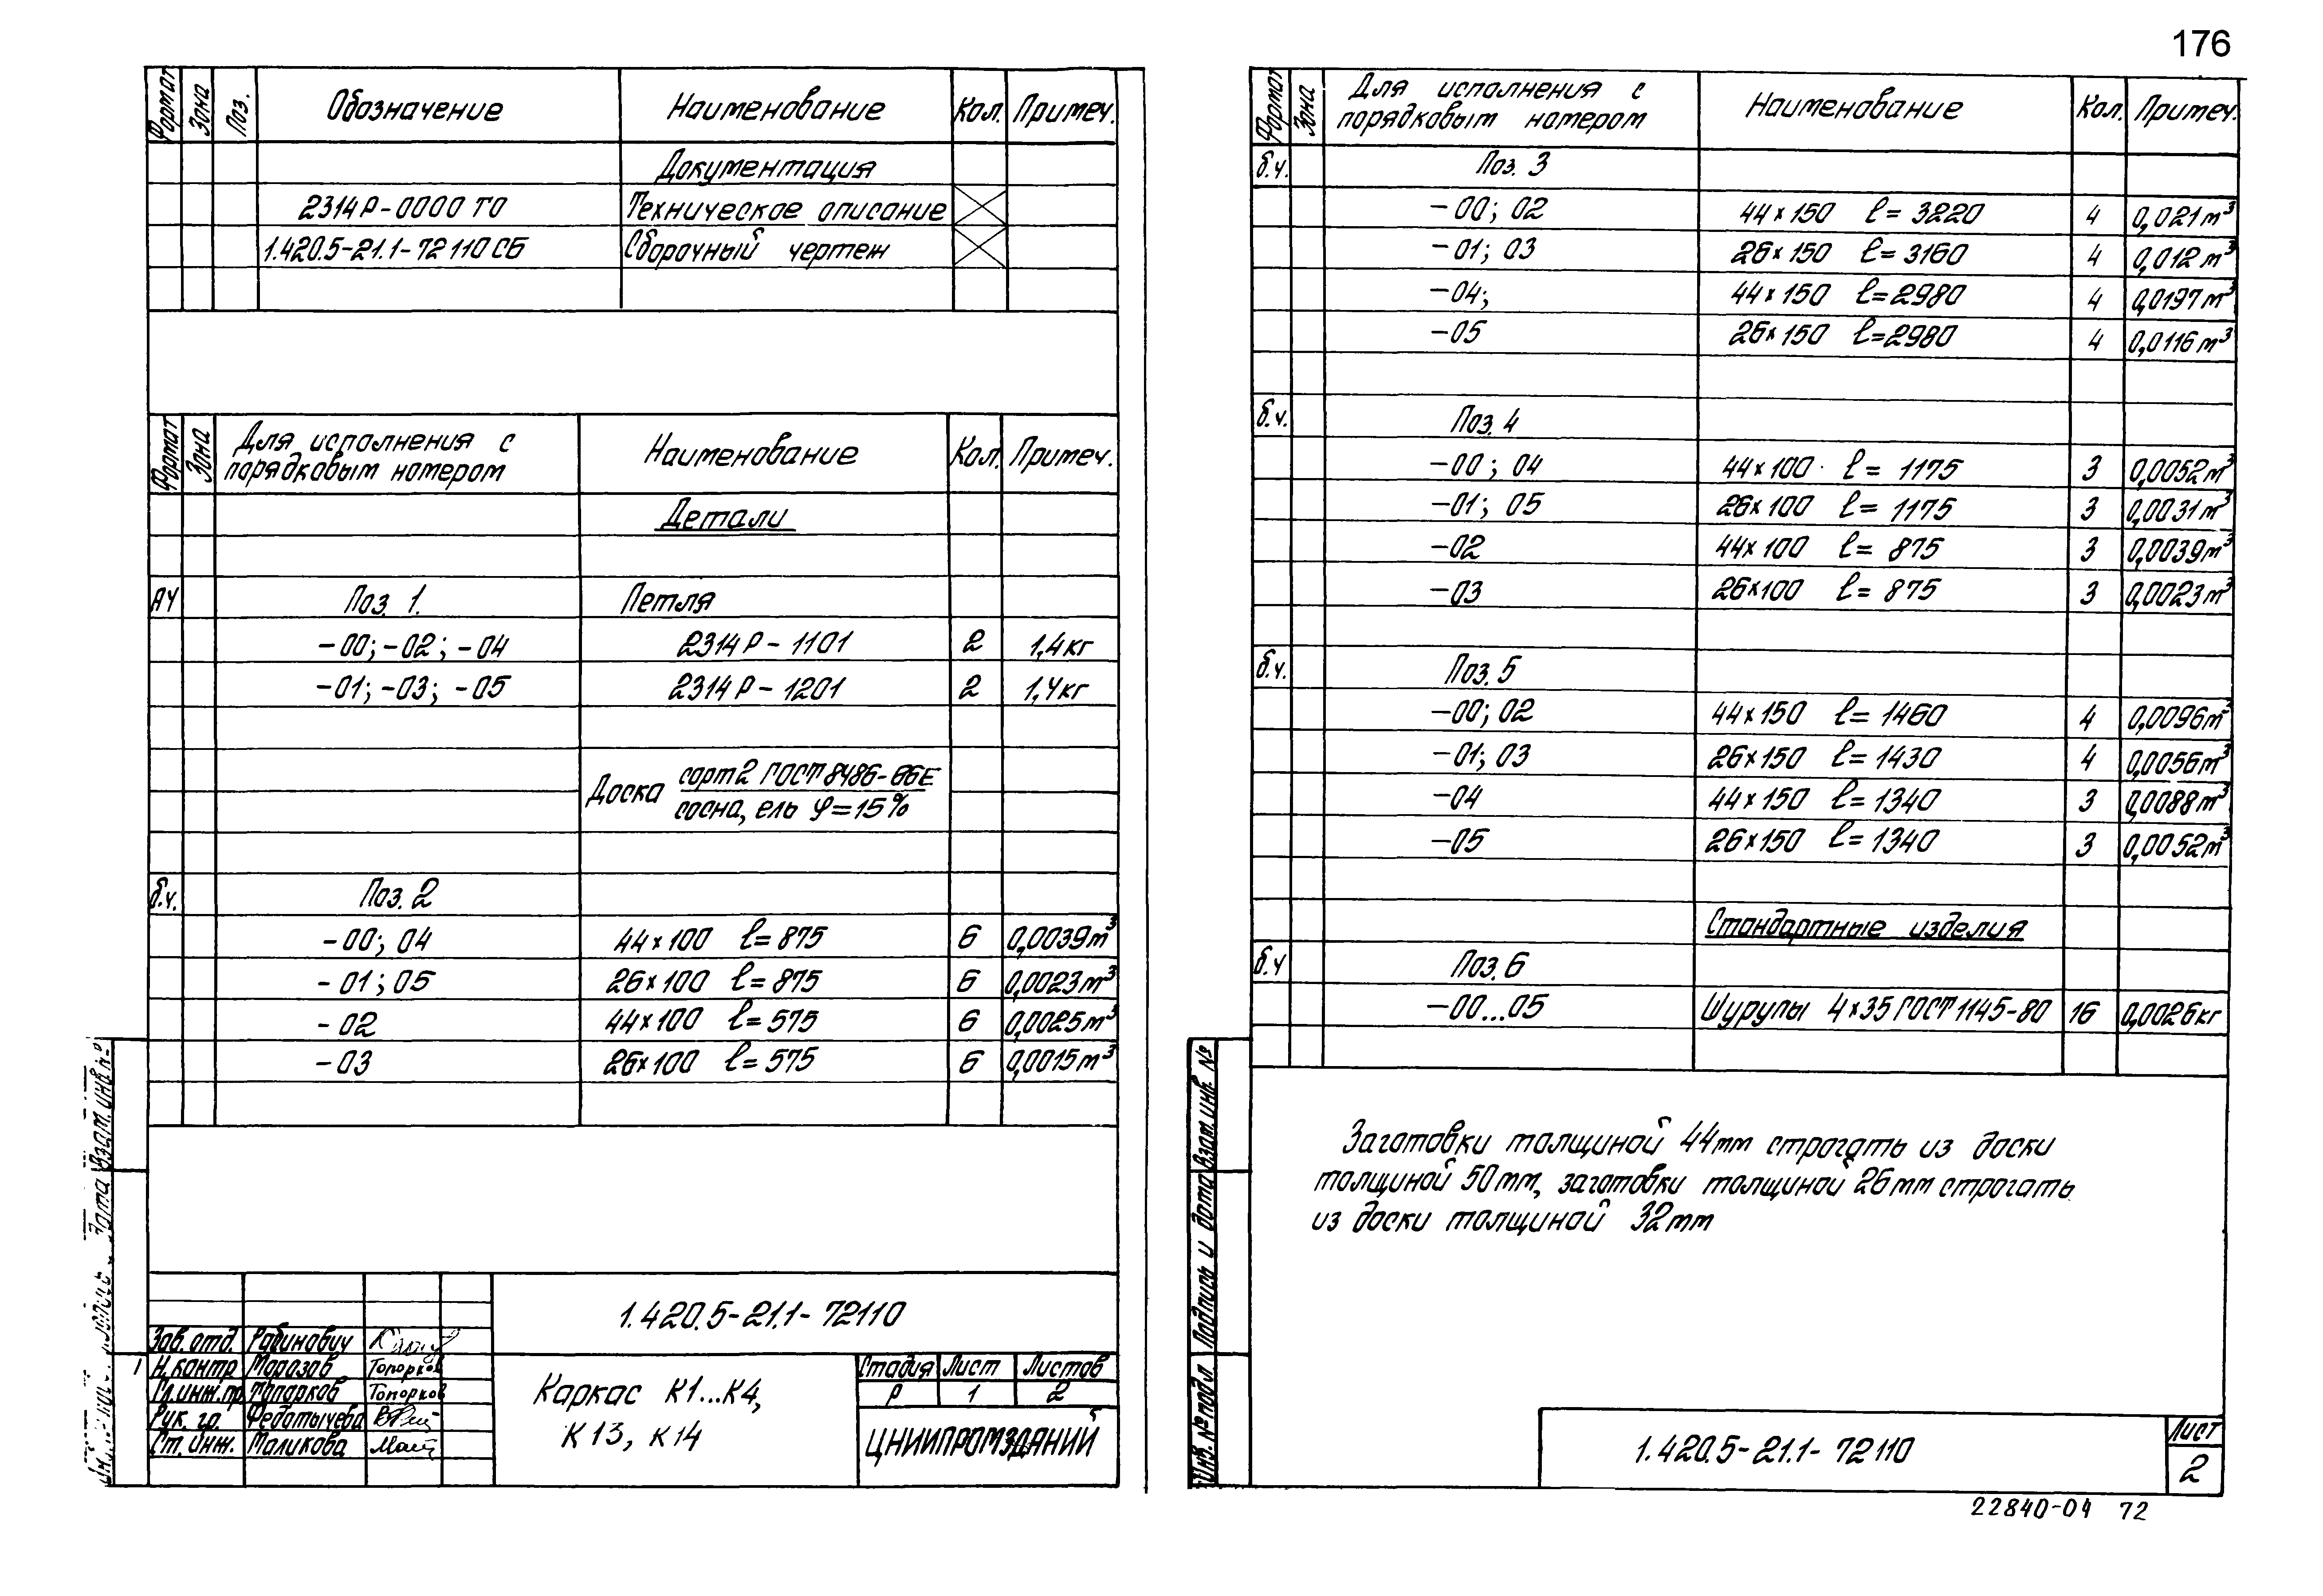 176
Формат Зона Поз. Обозначение Наименование Кол. Примеч.
Документация
2314Р-0000 ТО Техническое описание
1.420.5-21.1-72110СБ Сборочный чертеж
Формат Зона Для исполнения с порядковым номером Наименование Кол. Примеч.
Детали
А4 Поз. 1. Петля
-00; -02; -04 2314Р-1101 2 1,4кг
-01; -03; -05 2314Р-1201 2 1,4кг
Доска сорт 2 ГОСТ 8486-66Е
сосна, ель φ=15%
б.ч. Поз. 2
-00; 04 44×100 ℓ=875 6 0,0039м³
-01; 05 26×100 ℓ=875 6 0,0023м³
-02 44×100 ℓ=575 6 0,0025м³
-03 26×100 ℓ=575 6 0,0015м³
Взам. инв. №
1.420.5-21.1-72110
Зав. отд. Рабинович
Н. контр Морозов Топорков
Гл.инж.пр. Топорков Топорков
Рук. гр. Федатычева
Ст. инж. Маликова
Каркас К1...К4,
К13, К14
Стадия Лист Листов
Р 1 2
ЦНИИПРОМЗДАНИЙ
Формат Зона Для исполнения с порядковым номером Наименование Кол. Примеч.
б.ч. Поз. 3
-00; 02 44×150 ℓ=3220 4 0,021м³
-01; 03 26×150 ℓ=3160 4 0,012м³
-04; 44×150 ℓ=2980 4 0,0197м³
-05 26×150 ℓ=2980 4 0,0116м³
б.ч. Поз. 4
-00; 04 44×100 ℓ=1175 3 0,0052м³
-01; 05 26×100 ℓ=1175 3 0,0031м³
-02 44×100 ℓ=875 3 0,0039м³
-03 26×100 ℓ=875 3 0,0023м³
б.ч. Поз. 5
-00; 02 44×150 ℓ=1460 4 0,0096м³
-01; 03 26×150 ℓ=1430 4 0,0056м³
-04 44×150 ℓ=1340 3 0,0088м³
-05 26×150 ℓ=1340 3 0,0052м³
Стандартные изделия
б.ч Поз. 6
-00...05 Шурупы 4×35 ГОСТ 1145-80 16 0,0026кг
Заготовки толщиной 44мм строгать из доски
толщиной 50мм, заготовки толщиной 26мм строгать
из доски толщиной 32мм
Инв. № подл. Подпись и дата Взам. инв. №
1.420.5-21.1-72110
Лист
2
22840-04 72